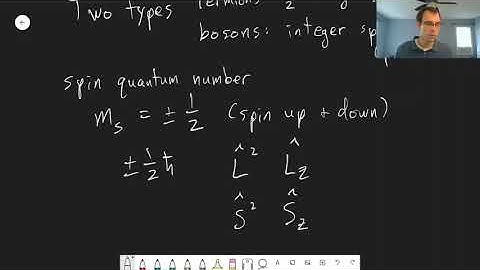 Two types fermions
bosons: integer
spin quantum number
m_s = ± 1/2 (spin up + down)
± 1/2 ħ L̂² L̂_z
Ŝ² Ŝ_z